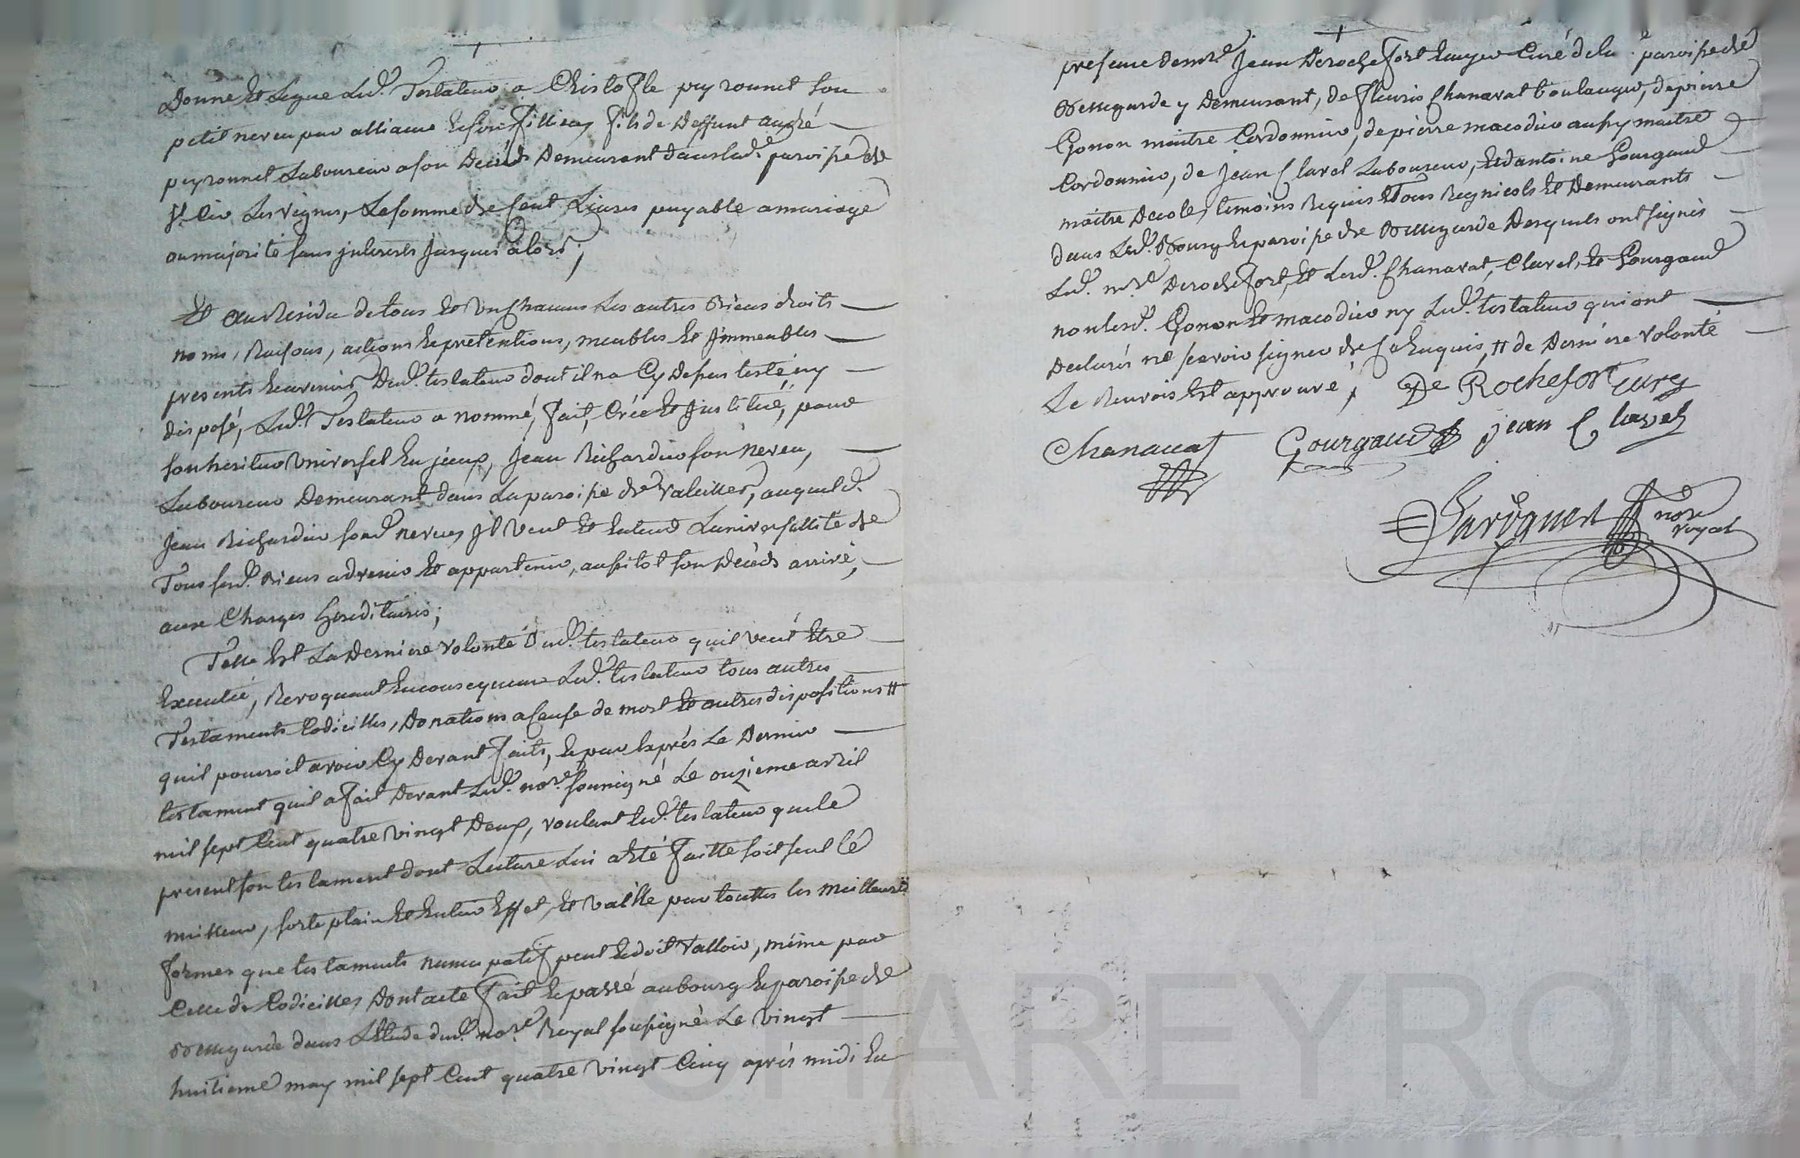 Donne et Legue Lud. Testateur a Christofle peyronnet son
petit neveu par alliance fils de Deffunt andré
peyronnet Laboureur a son Decéds Demeurant dans lad. paroisse de
st Cir Les Vignes, La somme de Cent Livres payable a mariage
ou majorité sans jnterests jusques alors;
Et au Residu de tous et Un Chacuns Les autres Biens droits
noms, Raisons, actions et prétentions, meubles et jmmeubles
presents et avenirs Dud. testateur dont il na Cy Depus testé, ny
disposé, Lud. Testateur a nommé, fait, Créé et justitué, pour
son heritier Universel jean Richardier son neveu,
Laboureur Demeurant dans La paroisse de valeilles, auquel d.
jean Richardier sond. neveu jl veut et Entend Luniversallité de
Tous sesd. Biens advenir et appartenir, aussitot son Decéds arrivé,
aux Charges hereditaires;
Telle Est La Derniere volonté Dud. testateur quil veut Etre
Executée, Revoquant En consequence Led. testateur tous autres
Testaments Codicilles, Donations a Cause de mort Et autres dispositions #
quil pourroit avoir Cy Devant faits, et par Exprés Le Dernier
testament quil a fait Devant Led. nore. soussigné Le onzieme avril
mil sept Cent quatre vingt Deux, voulant Led. testateur que le
present son testament dont Lecture Lui a Eté faitte soit seul le
meilleur, sorte plain Et Entier Effet, Et vaille par touttes les meilleures
formes que testaments nuncupatif peut Et doit valloir, même par
Celle de Codicilles Dont acte fait Et passé au bourg Et paroisse de
Bellegarde dans L'Etude dud. nore. Royal soussigné Le vingt
huitieme may mil sept Cent quatre vingt Cinq aprés midi En
presence de mre. jean De rochefort Curé de la paroisse de
Bellegarde y Demeurant, de fleuris Chanavat boulanger, de pierre
Gonon maitre Cordonnier, de pierre macodier aussy maitre
Cordonnier, de jean Clavel Laboureur, Et dantoine Gourgaud
maitre Decole, temoins Requis Et tous Regnicols Et Demeurants
dans Led. Bourg Et paroisse de Bellegarde Desquels ont signés
Led. mre. De rochefort, Et Lesd. Chanavat, Clavel, Et Gourgaud
non lesd. Gonon Et macodier ny Led. testateur qui ont
Declarés ne scavoir signer de Ce Enquis, # de Derniere volonté
Le Renvois Est approuvé;
De Rochefort curé
Chanavat Gourgaud jean Clavel
nore royal
CHAREYRON